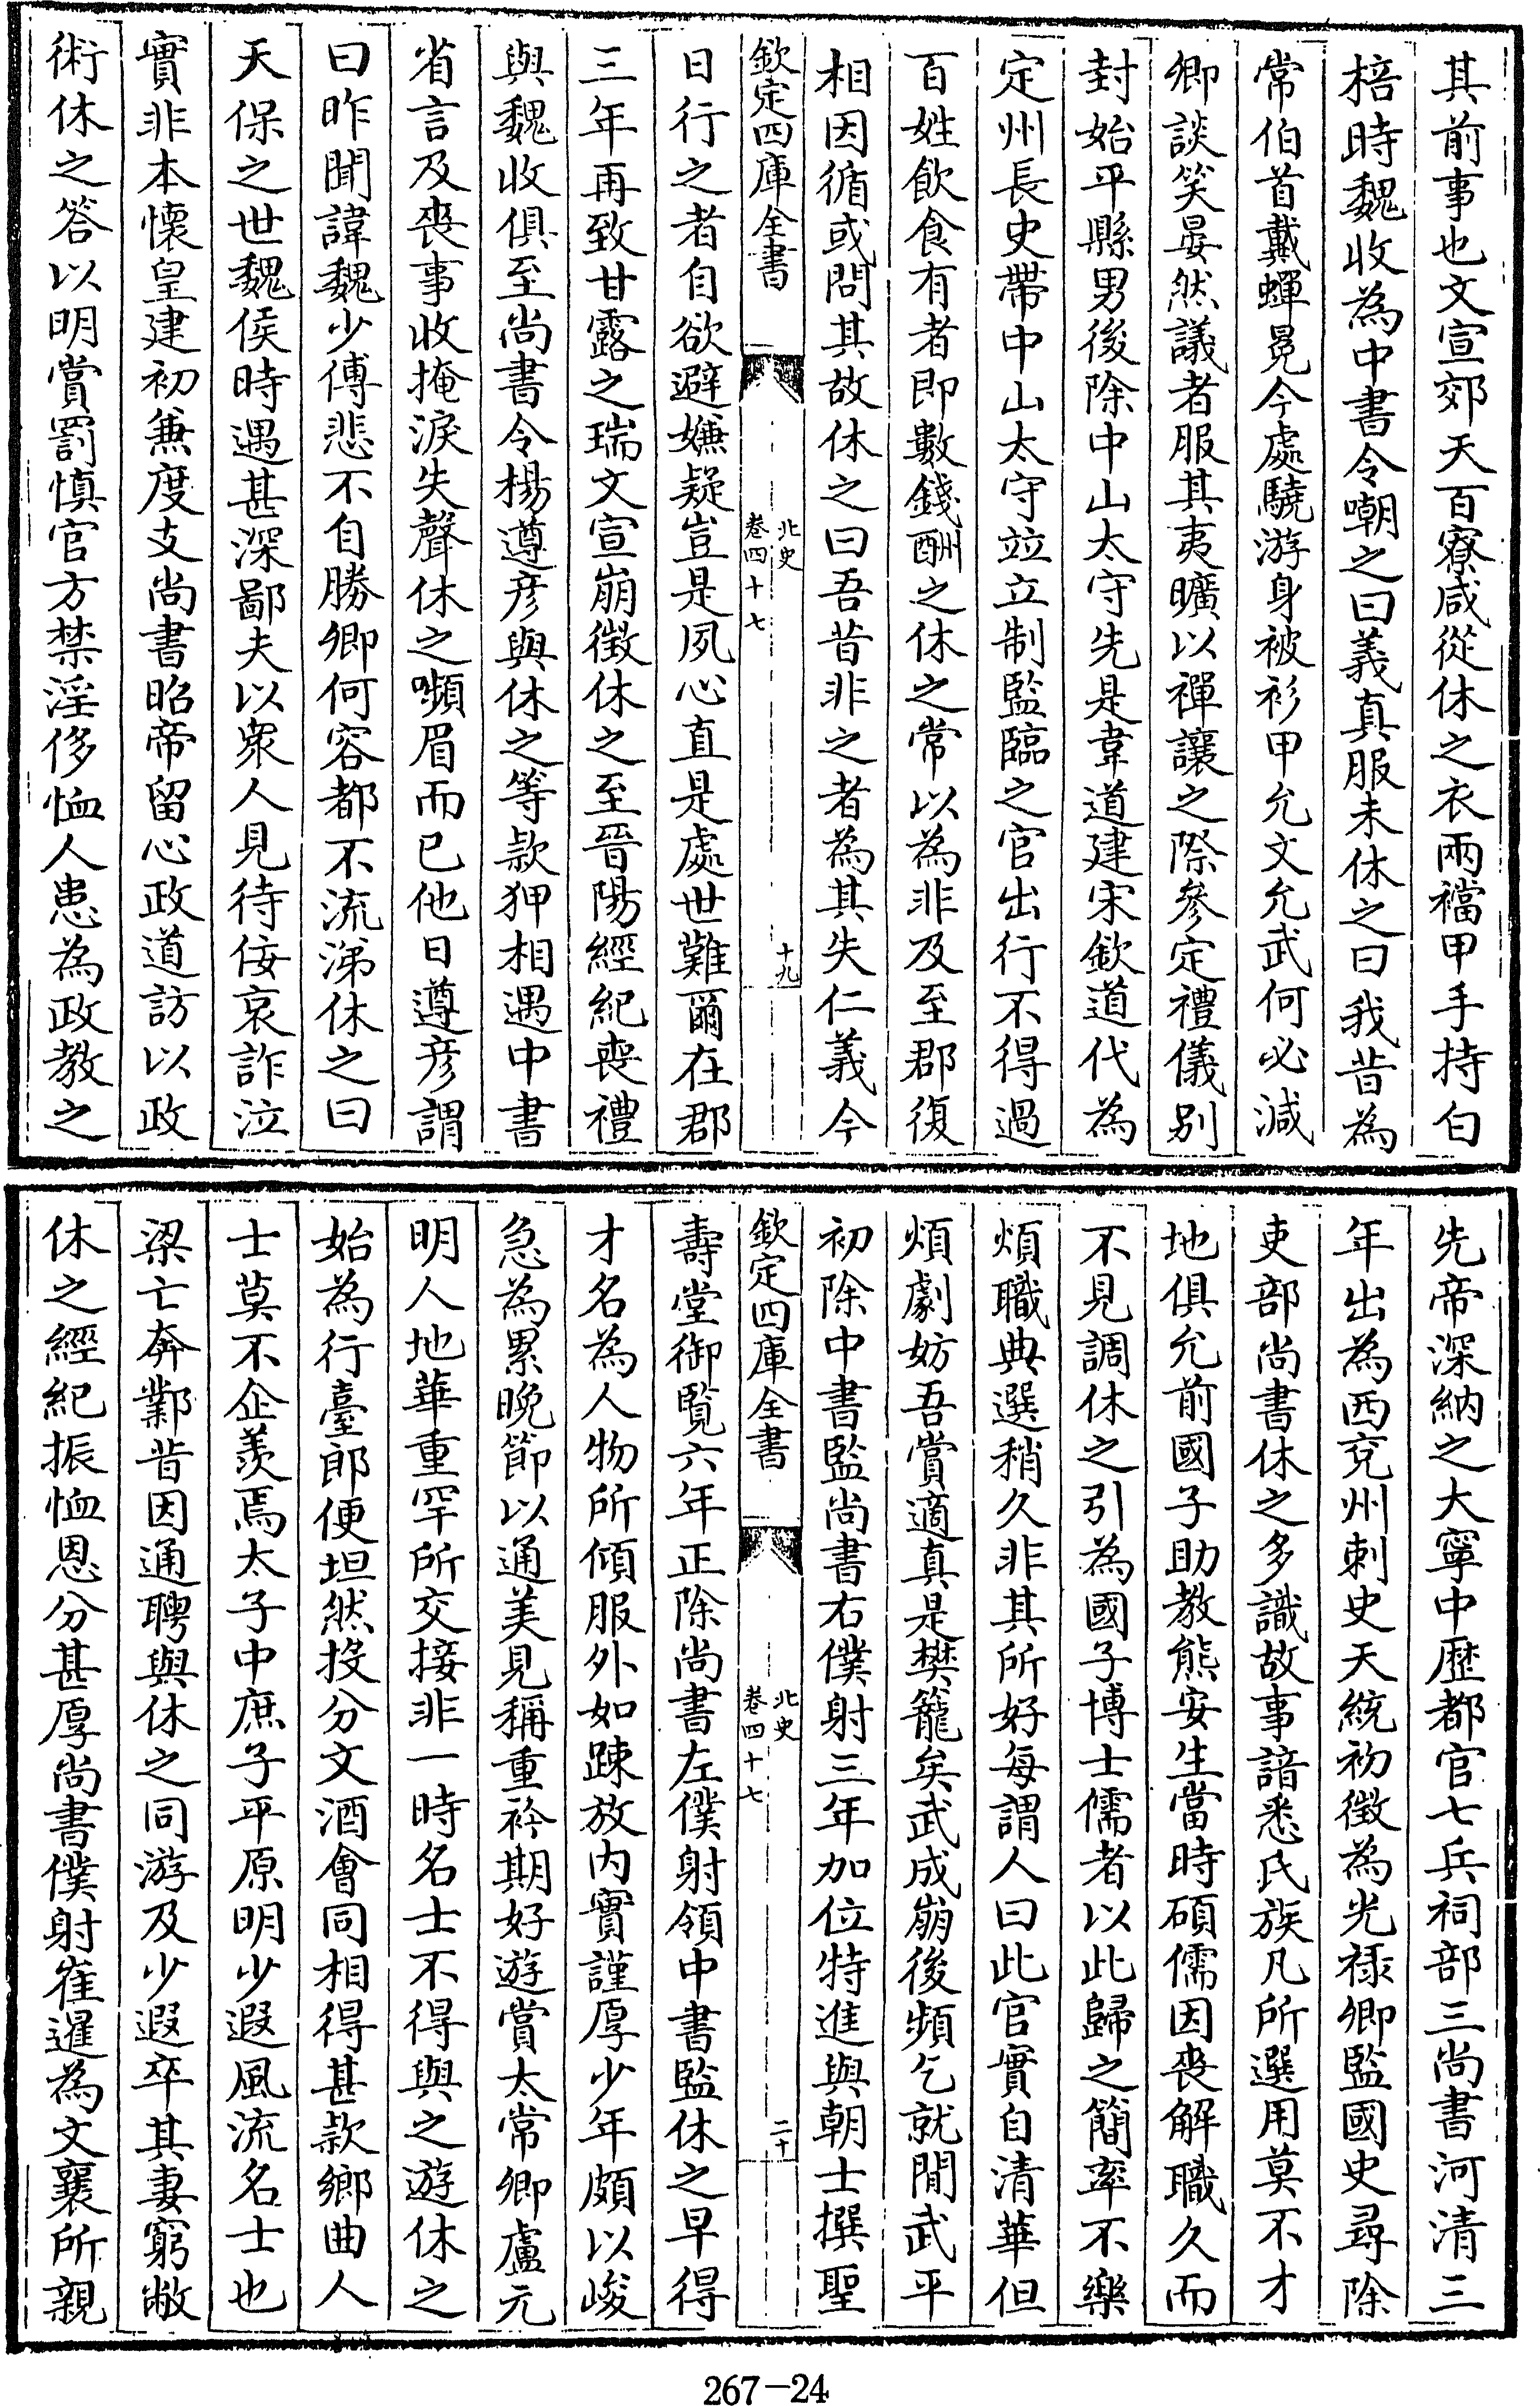 其前事也文宣郊天百寮咸從休之衣兩襠甲手持白
棓時魏收為中書令嘲之曰義真服未休之曰我昔為
常伯首戴蟬冕今處驍游身被衫甲允文允武何必減
卿談笑晏然議者服其夷曠以禪讓之際參定禮儀別
封始平縣男後除中山太守先是韋道建宋欽道代為
定州長史帶中山太守竝立制監臨之官出行不得過
百姓飲食有者即數錢酬之休之常以為非及至郡復
相因循或問其故休之曰吾昔非之者為其失仁義今
欽定四庫全書
北史
卷四十七
十九
日行之者自欲避嫌疑豈是夙心直是處世難爾在郡
三年再致甘露之瑞文宣崩徵休之至晉陽經紀喪禮
與魏收俱至尚書令楊遵彥與休之等款狎相遇中書
省言及喪事收掩淚失聲休之嚬眉而已他日遵彥謂
曰昨聞諱魏少傅悲不自勝卿何容都不流涕休之曰
天保之世魏侯時遇甚深鄙夫以衆人見待佞哀詐泣
實非本懷皇建初兼度支尚書昭帝留心政道訪以政
術休之答以明賞罰慎官方禁淫侈恤人患為政教之
先帝深納之大寧中歷都官七兵祠部三尚書河清三
年出為西兗州刺史天統初徵為光祿卿監國史尋除
吏部尚書休之多識故事諳悉氏族凡所選用莫不才
地俱允前國子助教熊安生當時碩儒因喪解職久而
不見調休之引為國子博士儒者以此歸之簡率不樂
煩職典選稍久非其所好每謂人曰此官實自清華但
煩劇妨吾賞適真是樊籠矣武成崩後頻乞就閒武平
初除中書監尚書右僕射三年加位特進與朝士撰聖
欽定四庫全書
北史
卷四十七
二十
壽堂御覽六年正除尚書左僕射領中書監休之早得
才名為人物所傾服外如踈放內實謹厚少年頗以峻
急為累晚節以通美見稱重衿期好遊賞太常卿盧元
明人地華重罕所交接非一時名士不得與之遊休之
始為行臺郎便坦然投分文酒會同相得甚款鄉曲人
士莫不企羨焉太子中庶子平原明少遐風流名士也
梁亡奔鄴昔因通聘與休之同游及少遐卒其妻窮敝
休之經紀振恤恩分甚厚尚書僕射崔暹為文襄所親
267-24